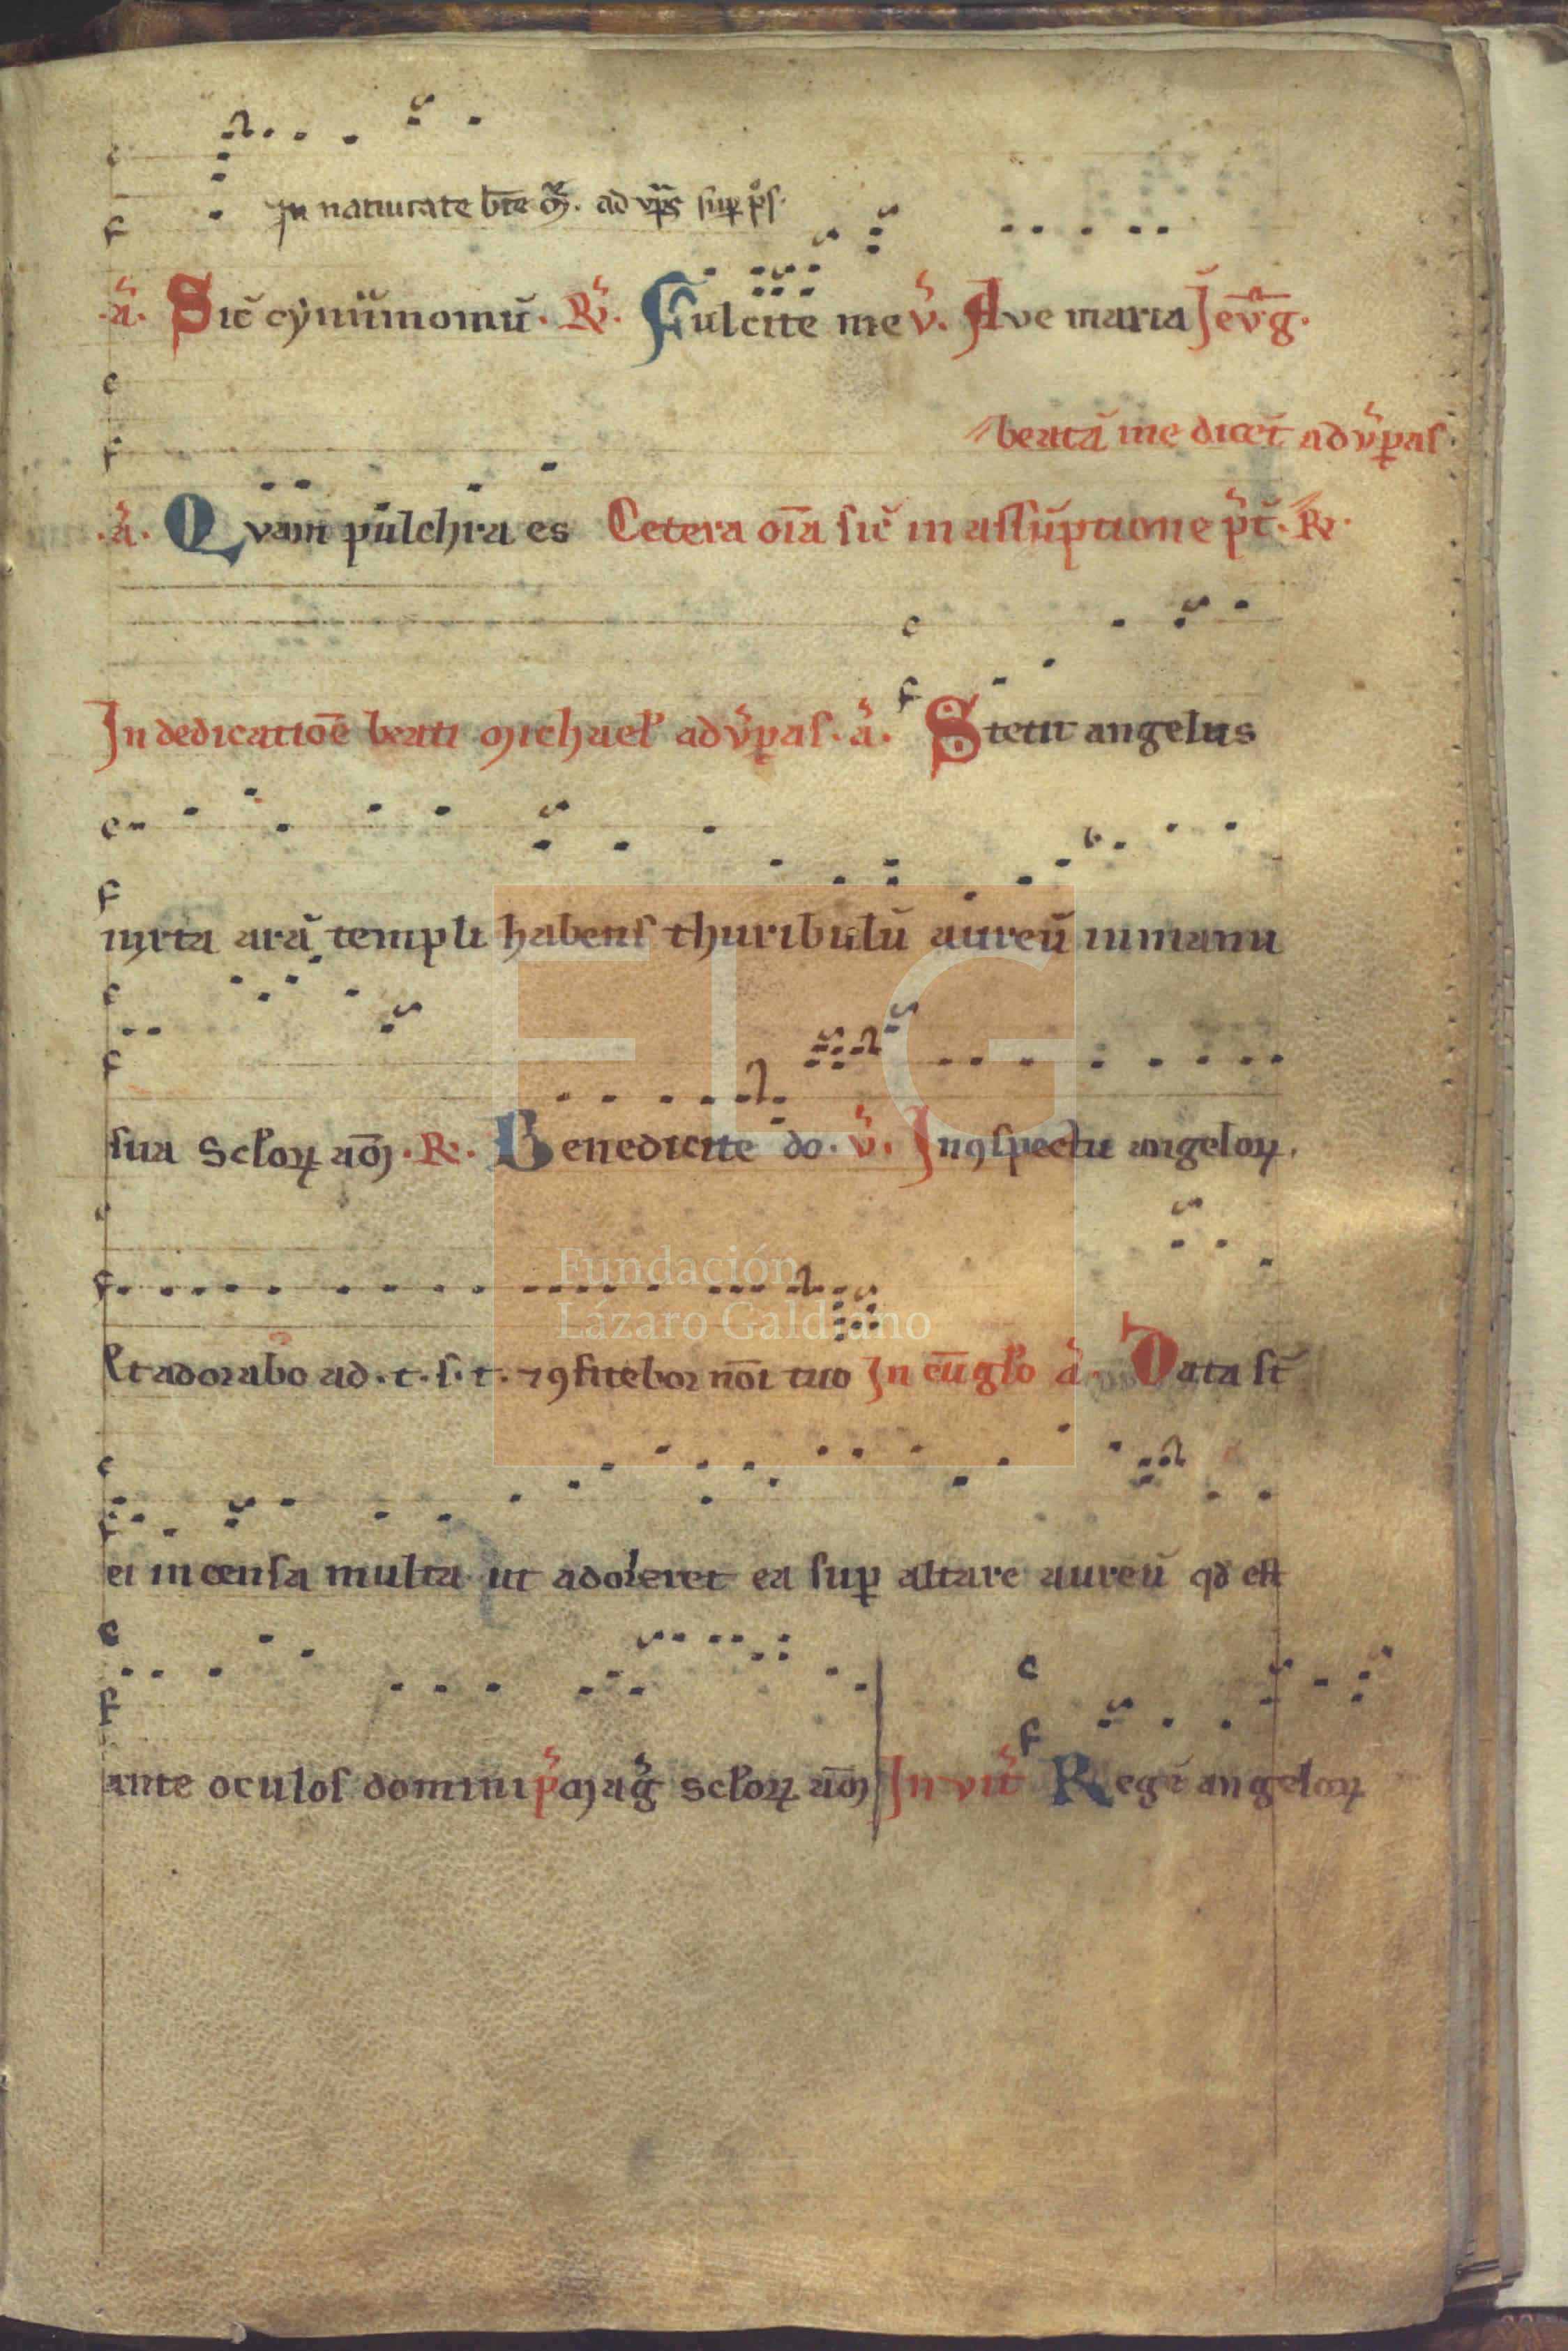 In natiuitate bēe m̃. ad vp̃s sup p̊s.
.a. Sic̄ cynnamomū. R. Fulcite me v̄. Ave maria J ev̄g.
beatā me dicēt ad vꝑas.
.a. Qvam pulchra es Cetera oīa sic̄ in assūptione p̄t. R.
In dedicatiōe beati michael' ad vꝑas. a. Stetit angelus
iuxta arā templi habens thuribulū aureū in manu
sua Sc̄loꝝ am̄. R. Benedicite do. v̄. Inꝯspectu angeloꝝ.
Et adorabo ad. t. s. t. ⁊ ꝯfitebor nōi tuo In eūgl'o a. Data st̄
ei incensa multa ut adoleret ea suꝑ altare aureū qđ est
ante oculos domini p̄ mag̃ Sc̄loꝝ am̄ Invit̄ Regē angeloꝝ
FLG
Fundación
Lázaro Galdiano